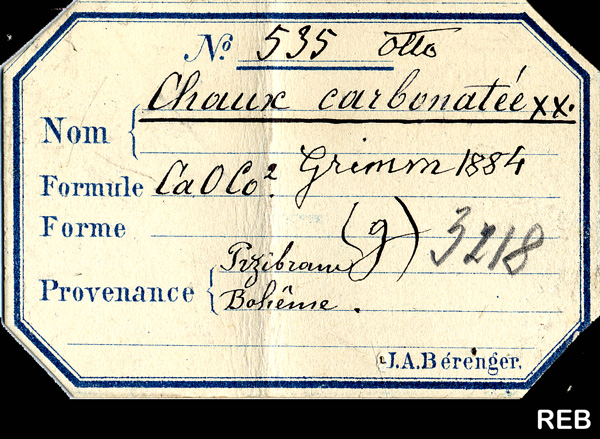 No. 535 Otto
Nom { Chaux carbonatée xx.
Formule CaOCo². Grimm 1884
Forme (g) 3218
Provenance { Przibram
Bohême.
J.A.Bérenger.
REB